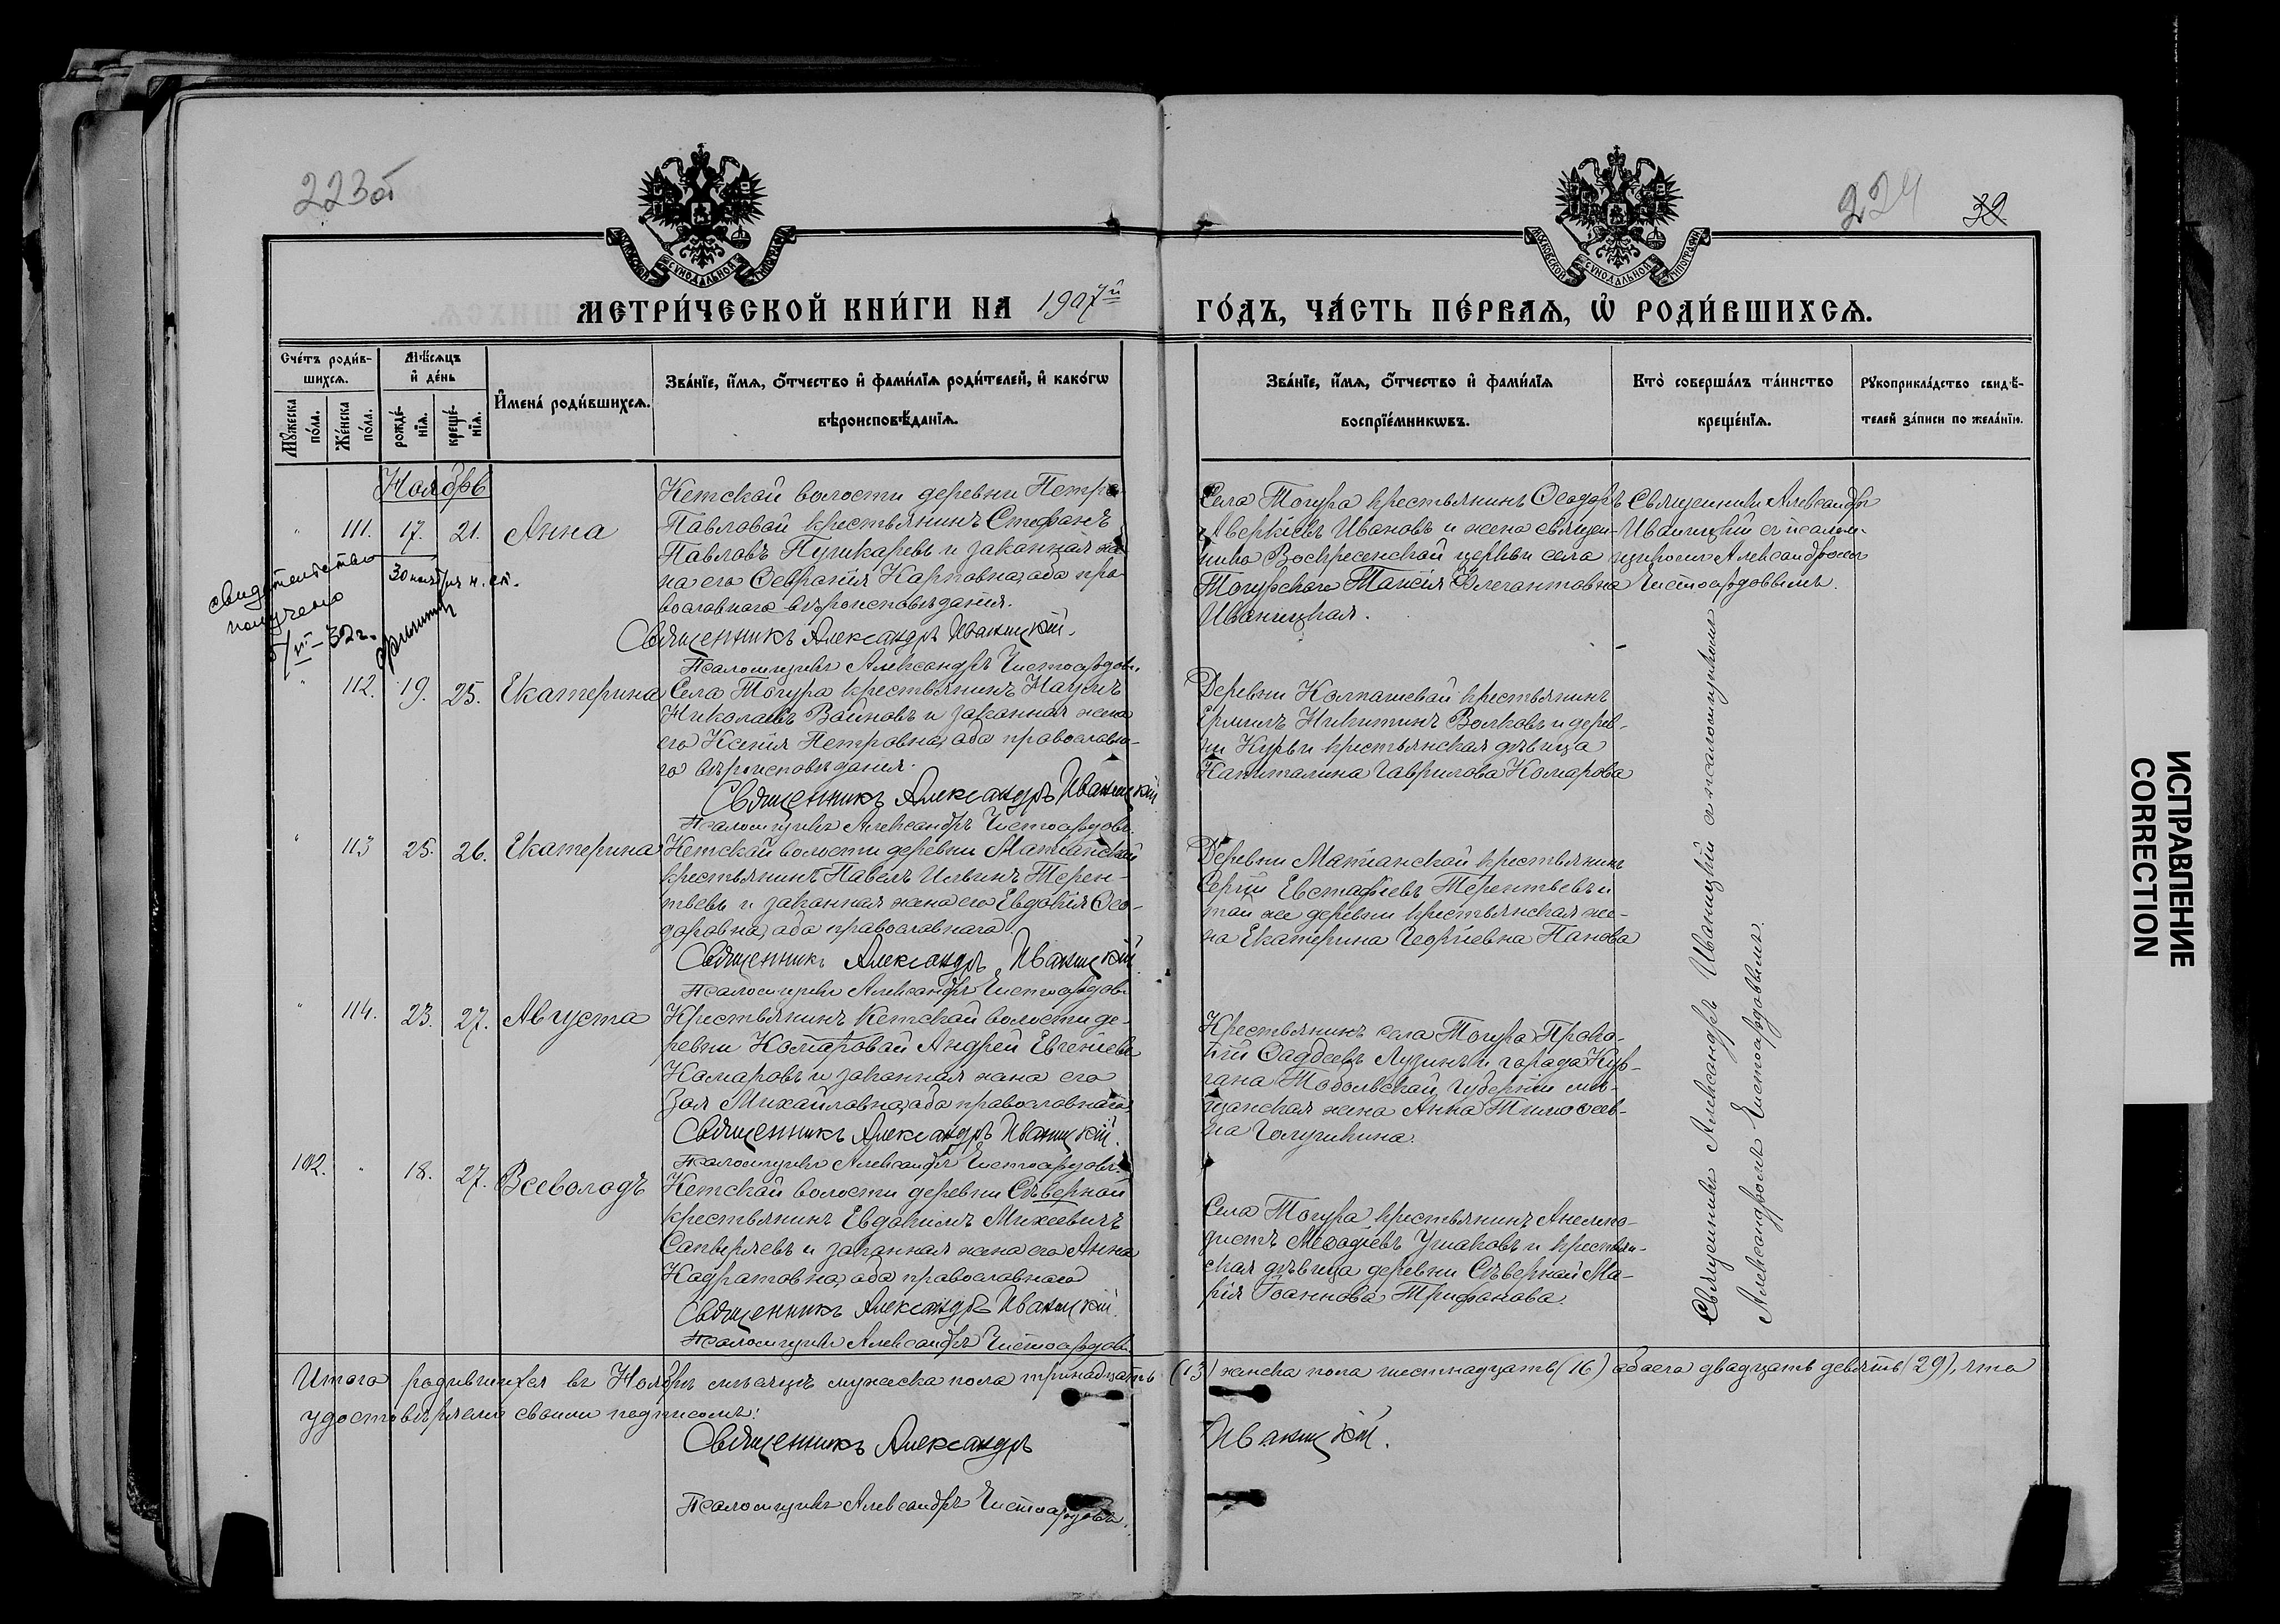 223об
224
39
МОСКОВСКОЙ СУНОДАЛЬНОЙ ТИПОГРАФІИ
МОСКОВСКОЙ СУНОДАЛЬНОЙ ТИПОГРАФІИ
МЕТРИ́ЧЕСКОЙ КНИ́ГИ НА 1907й
ГО́ДЪ, ЧА́СТЬ ПЕ́РВАѦ, Ѡ РОДИ́ВШИХСѦ.
Сче́тъ роди́в-
шихсѧ.
Мѣ́сѧцъ
и де́нь
Мꙋжеска по́ла.
Же́нска по́ла.
рожде́-
нїѧ.
креще́-
нїѧ.
Имена́ роди́вшихсѧ.
Зва́нїе, и́мѧ, о́тчество и фами́лїѧ роди́телей, и како́гѡ
вѣроисповѣ́данїѧ.
Зва́нїе, и́мѧ, о́тчество и фами́лїѧ
воспрїе́мникѡвъ.
Кто̀ соверша́лъ та́инство
креще́нїѧ.
Рꙋкоприкла́дство свидѣ́-
телей за́писи по жела́нїю.
Ноябрь
" 111. 17. 21. Анна
Кетской волости деревни Петро-
Павловой крестьянинъ Стефанъ
Павловъ Пушкаревъ и законная же-
на его Евфросинія Карповна, оба пра-
вославнаго вѣроисповѣданія.
Священникъ Александръ Иваницкій.
Псаломщикъ Александръ Чистосердовъ.
Села Тогура крестьянинъ Ѳеодоръ
Аверкіевъ Ивановъ и жена священ-
ника Воскресенской церкви села
Тогурскаго Таисія Флегонтовна
Иваницкая.
Священникъ Александръ
Иваницкій съ псалом-
щикомъ Александромъ
Чистосердовымъ.
свидѣтельство
получено
30 ноября н. ст.
" 112. 19. 25. Екатерина
Села Тогура крестьянинъ Наумъ
Николаевъ Войновъ и законная жена
его Ксенія Петровна, оба православна-
го вѣроисповѣданія.
Священникъ Александръ Иваницкій
Псаломщикъ Александръ Чистосердовъ.
Деревни Колпашевой крестьянинъ
Ермилъ Никитинъ Волковъ и дерев-
ни Курьи крестьянская дѣвица
Капиталина Гаврилова Комарова
" 113 25. 26. Екатерина
Кетской волости деревни Матіанской
крестьянинъ Павелъ Ильинъ Терен-
тьевъ и законная жена его Евдокія Ѳео-
доровна, оба православнаго
Священникъ Александръ Иваницкій.
Псаломщикъ Александръ Чистосердовъ
Деревни Матіанской крестьянинъ
Сергій Евстафіевъ Терентьевъ и
той же деревни крестьянская же-
на Екатерина Георгіевна Панова
" 114. 23. 27. Августа
Крестьянинъ Кетской волости де-
ревни Комаровой Андрей Евгеніевъ
Комаровъ и законная жена его
Зоя Михайловна, оба православнаго
Священникъ Александръ Иваницкій.
Псаломщикъ Александръ Чистосердовъ.
Крестьянинъ села Тогура Проко-
пій Ѳаддеевъ Лузинъ и города Кур-
гана Тобольской губерніи мѣ-
щанская жена Анна Тимоѳеев-
на Голушкина.
102. " 18. 27. Всеволодъ
Кетской волости деревни Сѣверной
крестьянинъ Евдокимъ Михеевичъ
и законная жена его Анна
Кодратовна, оба православнаго
Священникъ Александръ Иваницкій
Псаломщикъ Александръ Чистосердовъ
Села Тогура крестьянинъ Анемпо-
дистъ Меѳодіевъ Ушаковъ и крестьян-
ская дѣвица деревни Сѣверной Ма-
рія Іоаннова Трифонова.
Священникъ Александръ Иваницкій съ псаломщикомъ
Александромъ Чистосердовымъ.
Итого родившихся въ Ноябрѣ мѣсяцѣ мужеска пола тринадцать (13) женска пола шестнадцать (16) обоего двадцать девять (29), что
удостовѣряемъ своимъ подписомъ:
Священникъ Александръ Иваницкій.
Псаломщикъ Александръ Чистосердовъ.
ИСПРАВЛЕНИЕ
CORRECTION